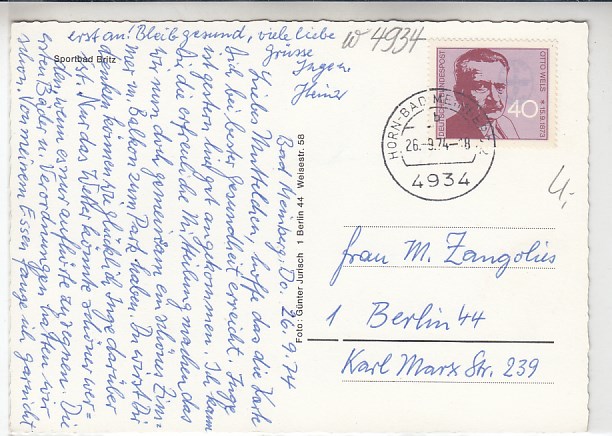 Sportbad Britz
Bad Meinberg, Do. 26.9.74
Liebes Muttelchen, hoffe das die Karte
Dich bei bester Gesundheit erreicht. Inge
ist gestern hier gut angekommen. Ich kann
Dir die erfreuliche Mitteilung machen, das
wir nun doch gemeinsam ein schönes Zim-
mer m. Balkon zum Park haben. Du wirst Dir
denken können wie glücklich Inge darüber
ist. Nur das Wetter könnte schöner wer-
den, wenn es nur aufhörte zu regnen. Die
ersten Bäder u. Verordnungen hatten wir
schon. Von meinem Essen fange ich garnicht
erst an! Bleib gesund, viele liebe
Grüsse
Inge u.
Heinz
Foto: Günter Jurisch 1 Berlin 44 Weisestr. 58
W 4934
DEUTSCHE BUNDESPOST
OTTO WELS * 15.9.1873
40
HORN-BAD MEINBERG
26.-9.74--8
4934
4,-
Frau M. Zangolies
1 Berlin 44
Karl Marx Str. 239